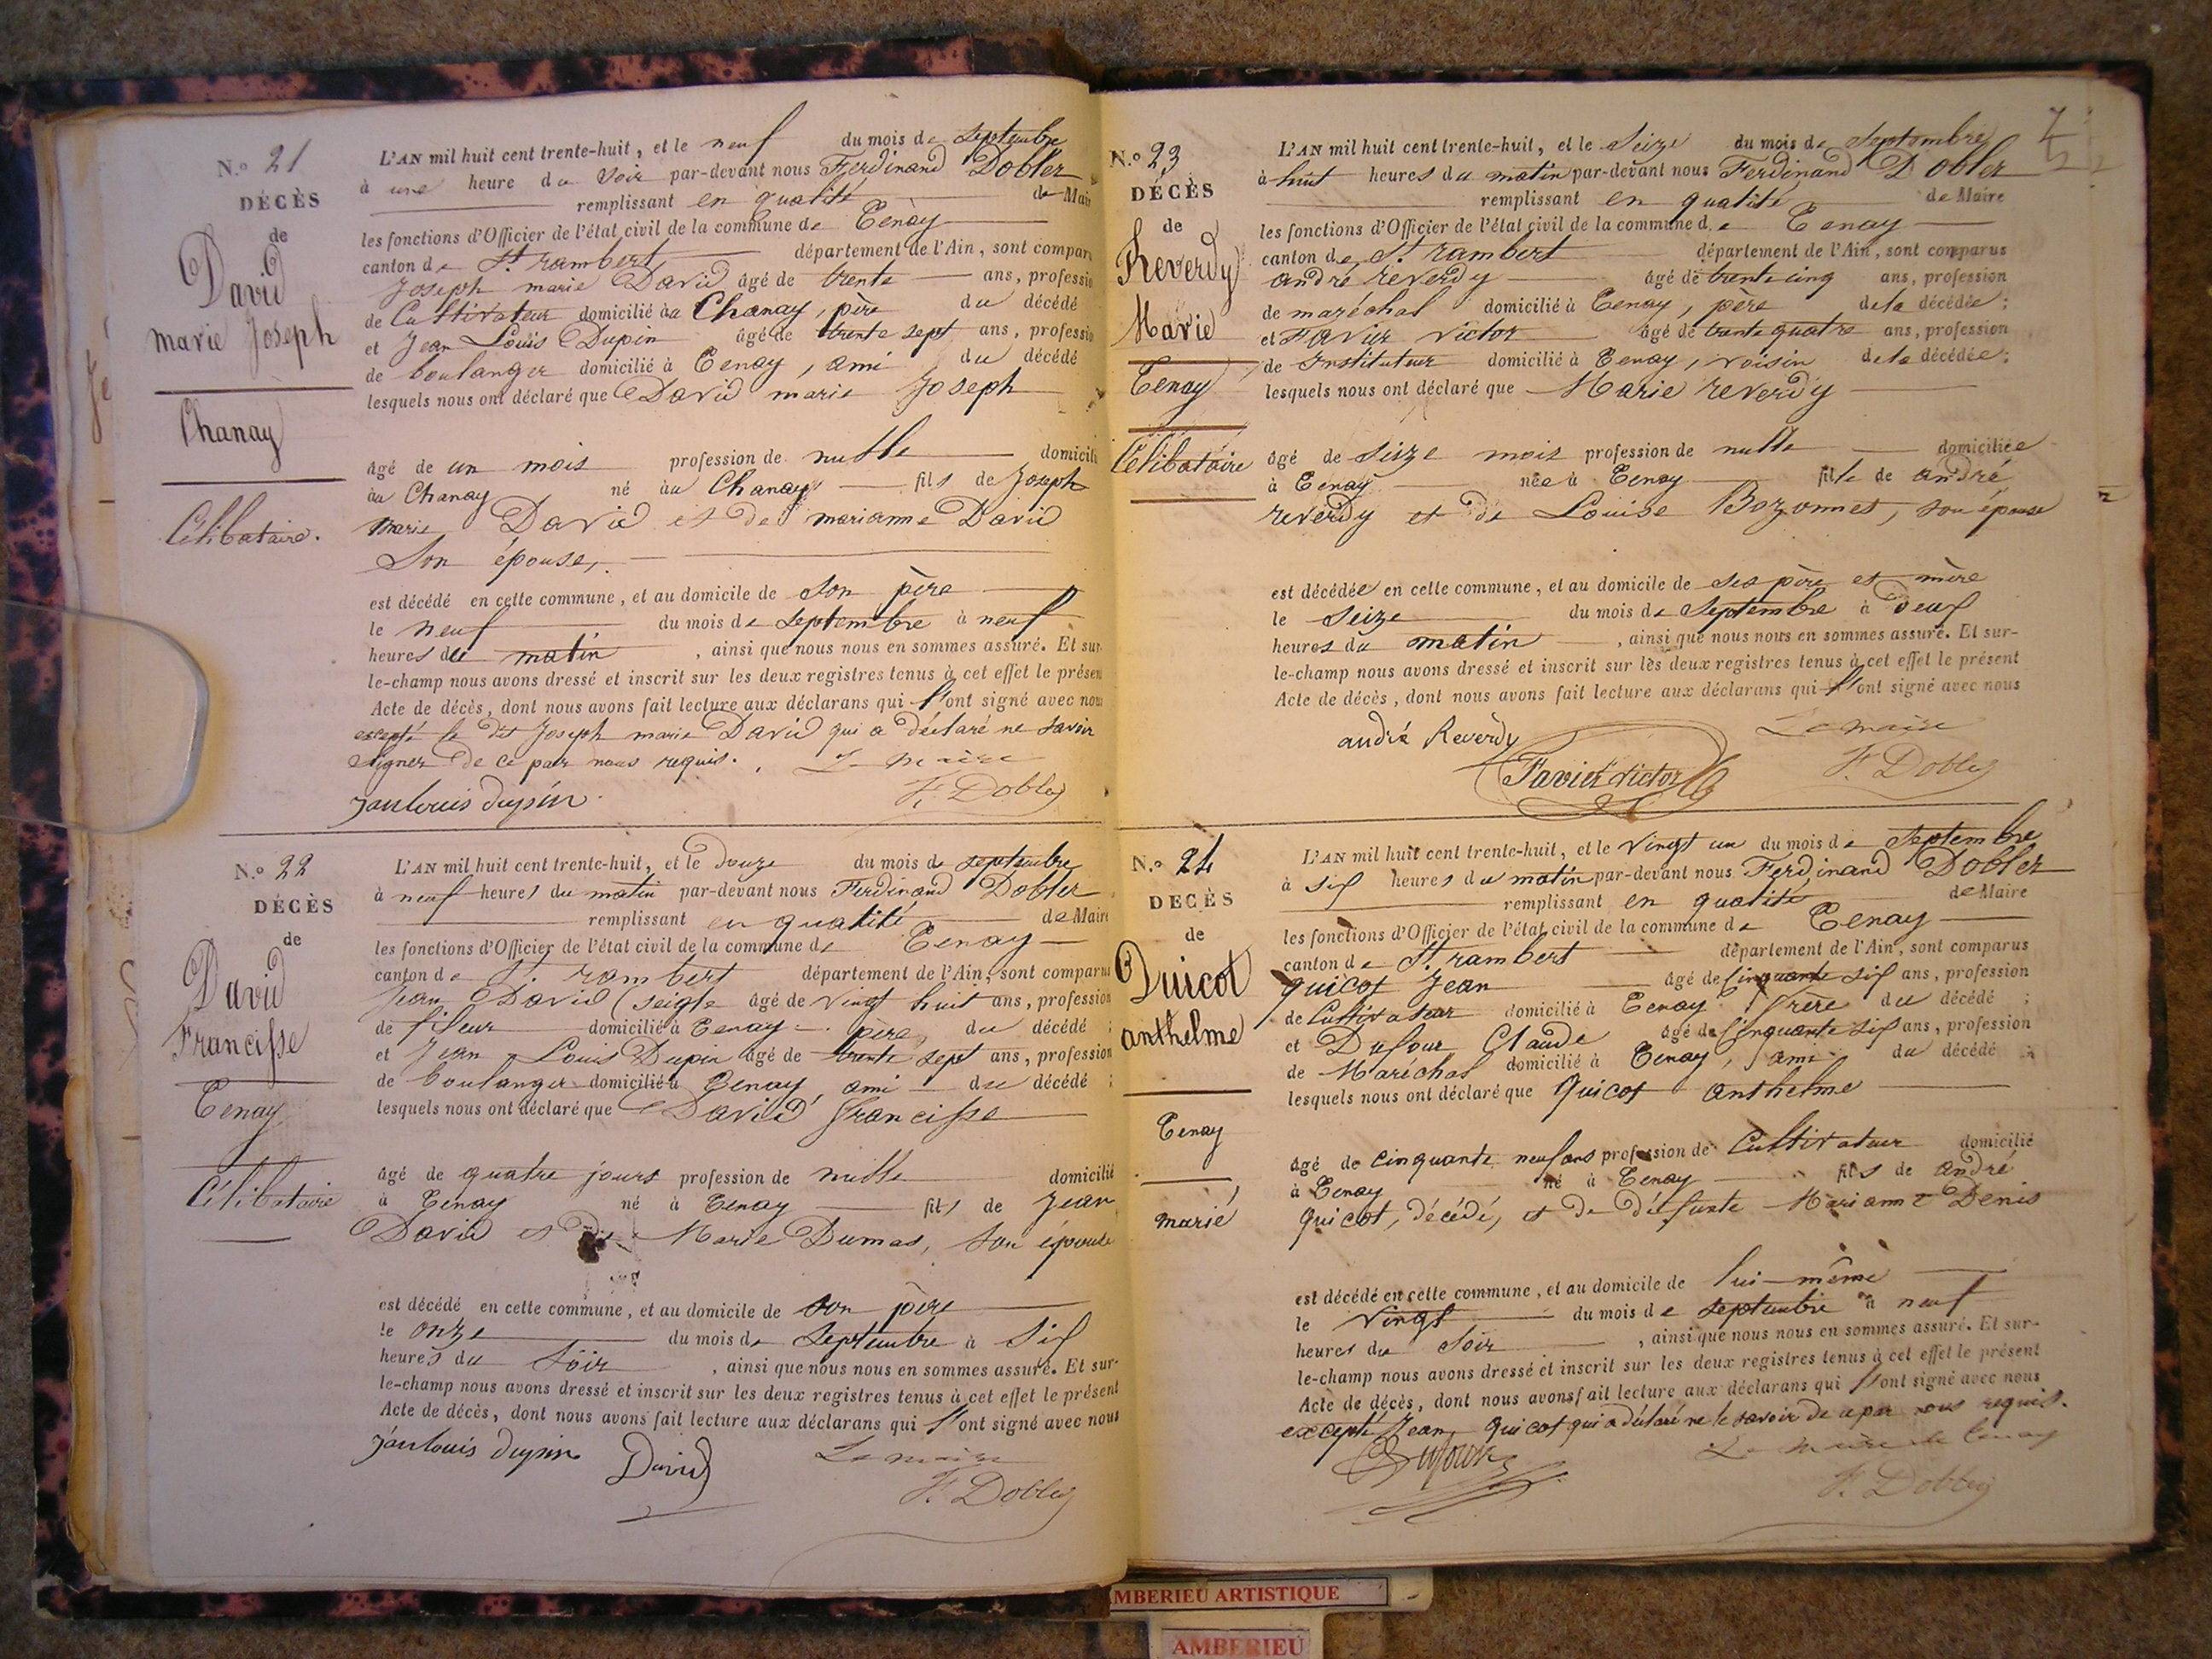 N.º 21
DÉCÈS
de
David
marie Joseph
Chanay
Célibataire.
L'AN mil huit cent trente-huit, et le neuf du mois de Septembre
à une heure du Soir par-devant nous Ferdinand Dobler
remplissant en qualité de Mair
les fonctions d'Officier de l'état civil de la commune de Tenay
canton de St. rambert département de l'Ain, sont compar
Joseph marie David âgé de trente ans, professio
de Cultivateur domicilié àa Chanay, père du décédé
et Jean Louis Dupin âgé de trente sept ans, professio
de boulanger domicilié à Tenay, ami du décédé
lesquels nous ont déclaré que David marie Joseph
âgé de un mois profession de nulle domicili
àu Chanay né àu Chanay fils de Joseph
marie David et de marianne David
Son épouse,
est décédé en cette commune, et au domicile de Son père
le neuf du mois de Septembre à neuf
heures du matin, ainsi que nous nous en sommes assuré. Et sur
le-champ nous avons dressé et inscrit sur les deux registres tenus à cet effet le présen
Acte de décès, dont nous avons fait lecture aux déclarans qui l'ont signé avec nou
excepté le dit Joseph marie David qui a déclaré ne savoir
signer de ce par nous requis. Le maire
janlouis dupin F. Dobler
N.º 22
DÉCÈS
de
David
Francisse
Tenay
Célibataire
L'AN mil huit cent trente-huit, et le douze du mois de septembre
à neuf heures du matin par-devant nous Ferdinand Dobler
remplissant en qualité de Maire
les fonctions d'Officier de l'état civil de la commune de Tenay
canton de St. rambert département de l'Ain, sont comparus
Jean David (seigle âgé de vingt huit ans, profession
de fileur domicilié à Tenay père du décédé ;
et Jean Louis Dupin âgé de trente sept ans, profession
de boulanger domicilié à Tenay ami du décédé ;
lesquels nous ont déclaré que David francisse
âgé de quatre jours profession de nulle domicilié
à Tenay né à Tenay fils de Jean
David et de Marie Dumas, son épouse
est décédé en cette commune, et au domicile de son père
le onze du mois de Septembre à Six
heures du Soir, ainsi que nous nous en sommes assuré. Et sur-
le-champ nous avons dressé et inscrit sur les deux registres tenus à cet effet le présent
Acte de décès, dont nous avons fait lecture aux déclarans qui l'ont signé avec nous
janlouis dupin David Le maire
F. Dobler
N.º 23
DÉCÈS
de
Reverdy
Marie
Tenay
Célibataire
L'AN mil huit cent trente-huit, et le Seize du mois de Septembre
à huit heures du matin par-devant nous Ferdinand Dobler
remplissant en qualité de Maire
les fonctions d'Officier de l'état civil de la commune de Tenay
canton de St. rambert département de l'Ain, sont comparus
andré reverdy âgé de trente cinq ans, profession
de maréchal domicilié à Tenay, père de la décédée ;
et Favier victor âgé de trente quatre ans, profession
de Instituteur domicilié à Tenay, voisin de la décédée ;
lesquels nous ont déclaré que Marie reverdy
âgé de seize mois profession de nulle domiciliée
à Tenay née à Tenay fille de andré
reverdy et de Louise Bozonnet, son épouse
est décédée en cette commune, et au domicile de ses père et mère
le Seize du mois de Septembre à deux
heures du matin, ainsi que nous nous en sommes assuré. Et sur-
le-champ nous avons dressé et inscrit sur les deux registres tenus à cet effet le présent
Acte de décès, dont nous avons fait lecture aux déclarans qui l'ont signé avec nous
andré Reverdy Le maire
Favier victor F. Dobler
N.º 24
DECÈS
de
Quicot
anthelme
Tenay
marié
L'AN mil huit cent trente-huit, et le vingt un du mois de Septembre
à six heures du matin par-devant nous Ferdinand Dobler
remplissant en qualité de Maire
les fonctions d'Officier de l'état civil de la commune de Tenay
canton de St. rambert département de l'Ain, sont comparus
quicot Jean âgé de Cinquante six ans, profession
de Cultivateur domicilié à Tenay frere du décédé ;
et Dufour Claude âgé de Cinquante six ans, profession
de Maréchal domicilié à Tenay, ami du décédé ;
lesquels nous ont déclaré que Quicot anthelme
âgé de cinquante neuf ans profession de Cultivateur domicilié
à Tenay né à Tenay fils de andré
Quicot, décédé, et de défunte Marianne Denis
est décédé en cette commune, et au domicile de lui-même
le vingt du mois de septembre à neuf
heures du Soir, ainsi que nous nous en sommes assuré. Et sur-
le-champ nous avons dressé et inscrit sur les deux registres tenus à cet effet le présent
Acte de décès, dont nous avons fait lecture aux déclarans qui l'ont signé avec nous
excepté Jean Quicot qui a déclaré ne le savoir de ce par nous requis.
Dufour Le maire de Tenay
F. Dobler
AMBERIEU ARTISTIQUE
AMBERIEU